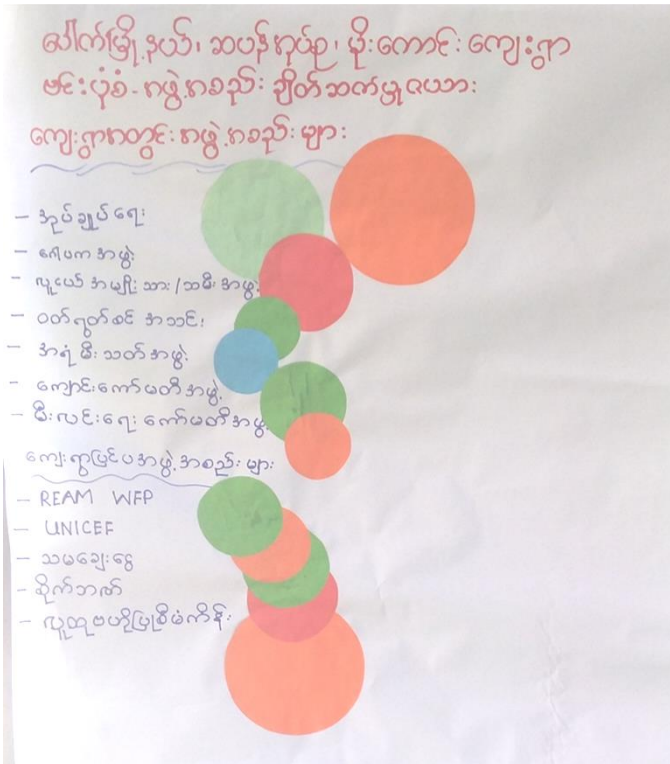 ပေါက်မြို့နယ်၊ ဆပန်အုပ်စု၊ မိုးကောင်းကျေးရွာ
ဗင်းပုံစံ-အဖွဲ့အစည်းချိတ်ဆက်မှုဇယား
ကျေးရွာတွင်းအဖွဲ့အစည်းများ
- အုပ်ချုပ်ရေး
- ရေပကအဖွဲ့
- လူငယ်အမျိုးသား/သမီးအဖွဲ့
- ဝတ်ရွတ်စဉ်အသင်း
- အရံမီးသတ်အဖွဲ့
- ကျောင်းကော်မတီအဖွဲ့
- မီးလင်းရေးကော်မတီအဖွဲ့
ကျေးရွာပြင်ပအဖွဲ့အစည်းများ
- REAM WFP
- UNICEF
- သမချေးငွေ
- စိုက်ဘဏ်
- လူထုဗဟိုပြုစီမံကိန်း